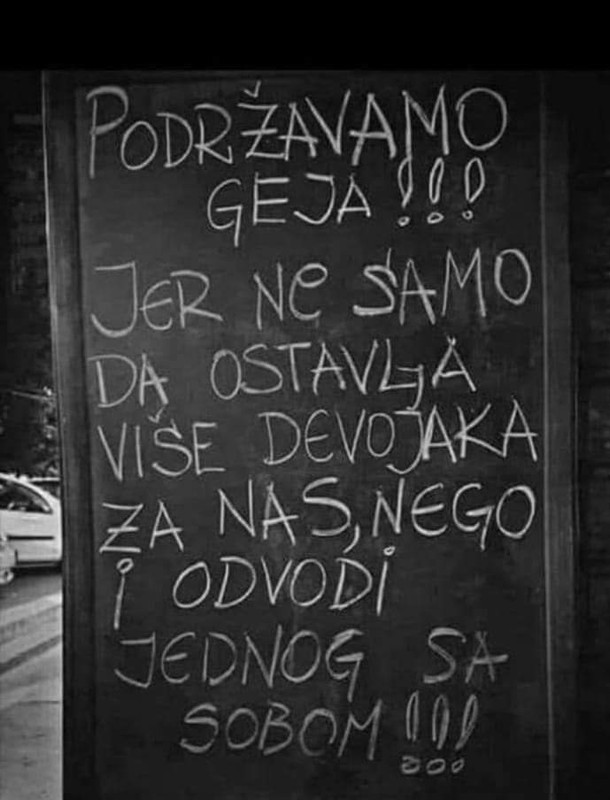 PODRŽAVAMO
GEJA !!!
JER NE SAMO
DA OSTAVLJA
VIŠE DEVOJAKA
ZA NAS, NEGO
I ODVODI
JEDNOG SA
SOBOM !!!